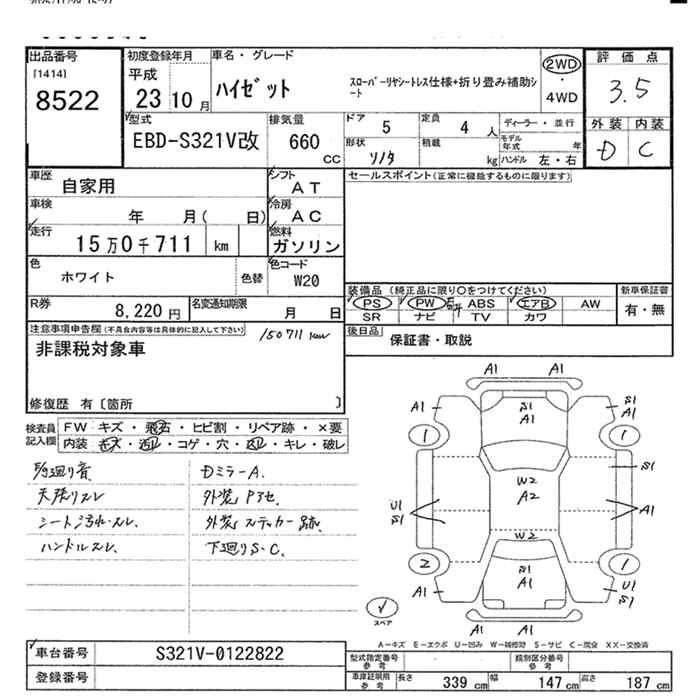 出品番号
[1414]
8522
初度登録年月
平成
23 10 月
車名・グレード
ハイゼット
スローパーリヤシートレス仕様+折り畳み補助シ
ート
2WD
・
4WD
評価点
3.5
外装 内装
D C
型式
EBD-S321V改
排気量
660
CC
ドア
5
定員
4 人
ディーラー・並行
モデル
年式 年
形状
積載
kg
ハンドル 左・右
車歴
自家用
シフト
AT
セールスポイント(正常に機能するものに限ります)
車検
年 月( 日)
冷房
AC
走行
15万0千711 km
燃料
ガソリン
色
ホワイト
色替
色コード
W20
装備品(純正品に限り○をつけてください)
新車保証書
PS PW ABS エアB AW
有・無
SR ナビ TV カワ
R券
8,220 円
名変通知期限
月 日
後日品
保証書・取説
注意事項申告欄(不具合内容等は具体的に記入して下さい)
150711 km
非課税対象車
修復歴 有〔箇所 〕
検査員
記入欄
FW キズ・飛石・ヒビ割・リペア跡・×要
内装 キズ・汚レ・コゲ・穴・凹レ・キレ・破レ
天張りスレ
シート汚れ・スレ
ハンドルスレ
Dミラー A.
外装 Pアセ
外装ステッカー跡
下廻りS.C.
A1 A1
A1 S1 A1 S1 A1
1 1
S1
W2
A2
U1 S1 A1
W2
2 S1 A1 1
A1 A1 U1 S1
スペア
A1 A1
A-キズ E-エクボ U-凹み W-補修跡 S-サビ C-腐食 XX-交換済
車台番号
S321V-0122822
登録番号
型式指定番号
参考
類別区分番号
参考
車庫証明用
参考
長さ 339 cm 幅 147 cm 高さ 187 cm